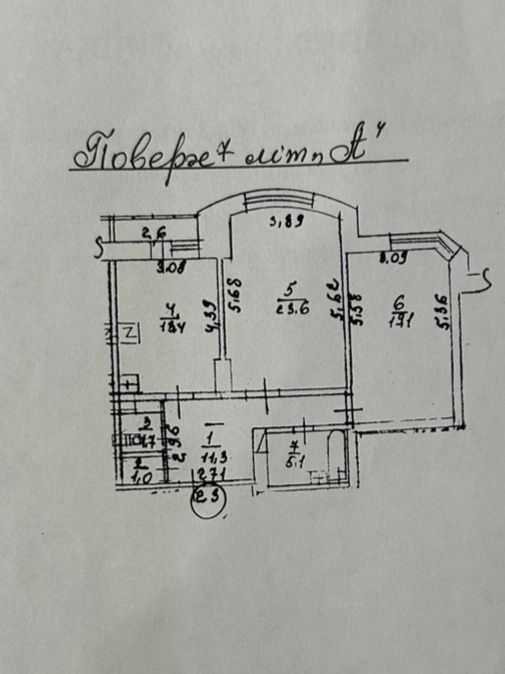 Поверх 7 літ „А"
2,6
3,89
3.08
3,09
4
13,4
4,39
5,68
5
23.6
5,62
5,38
6
17,1
5,36
3
1,7
2,36
1
11,3
7
5,1
2
1,0
2,71
23